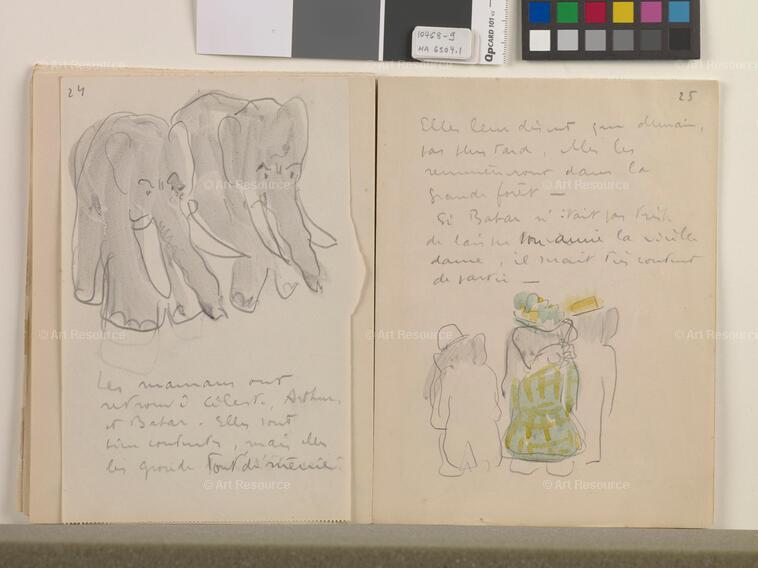 10468-9
MA 6304.1
QPCARD 101 v3
24
Les mamans ont
retrouvé Céleste, Arthur,
et Babar. Elles sont
bien contentes, mais elles
les gronde tout de même.
25
Elles leur disent que demain,
pas plus tard, elles les
remmèneront dans la
grande forêt —
Si Babar n'était pas triste
de laisser son amie la vieille
dame, il serait très content
de partir —
© Art Resource
© Art Resource
© Art Resource
© Art Resource
© Art Resource
© Art Resource
© Art Resource
© Art Resource
© Art Resource